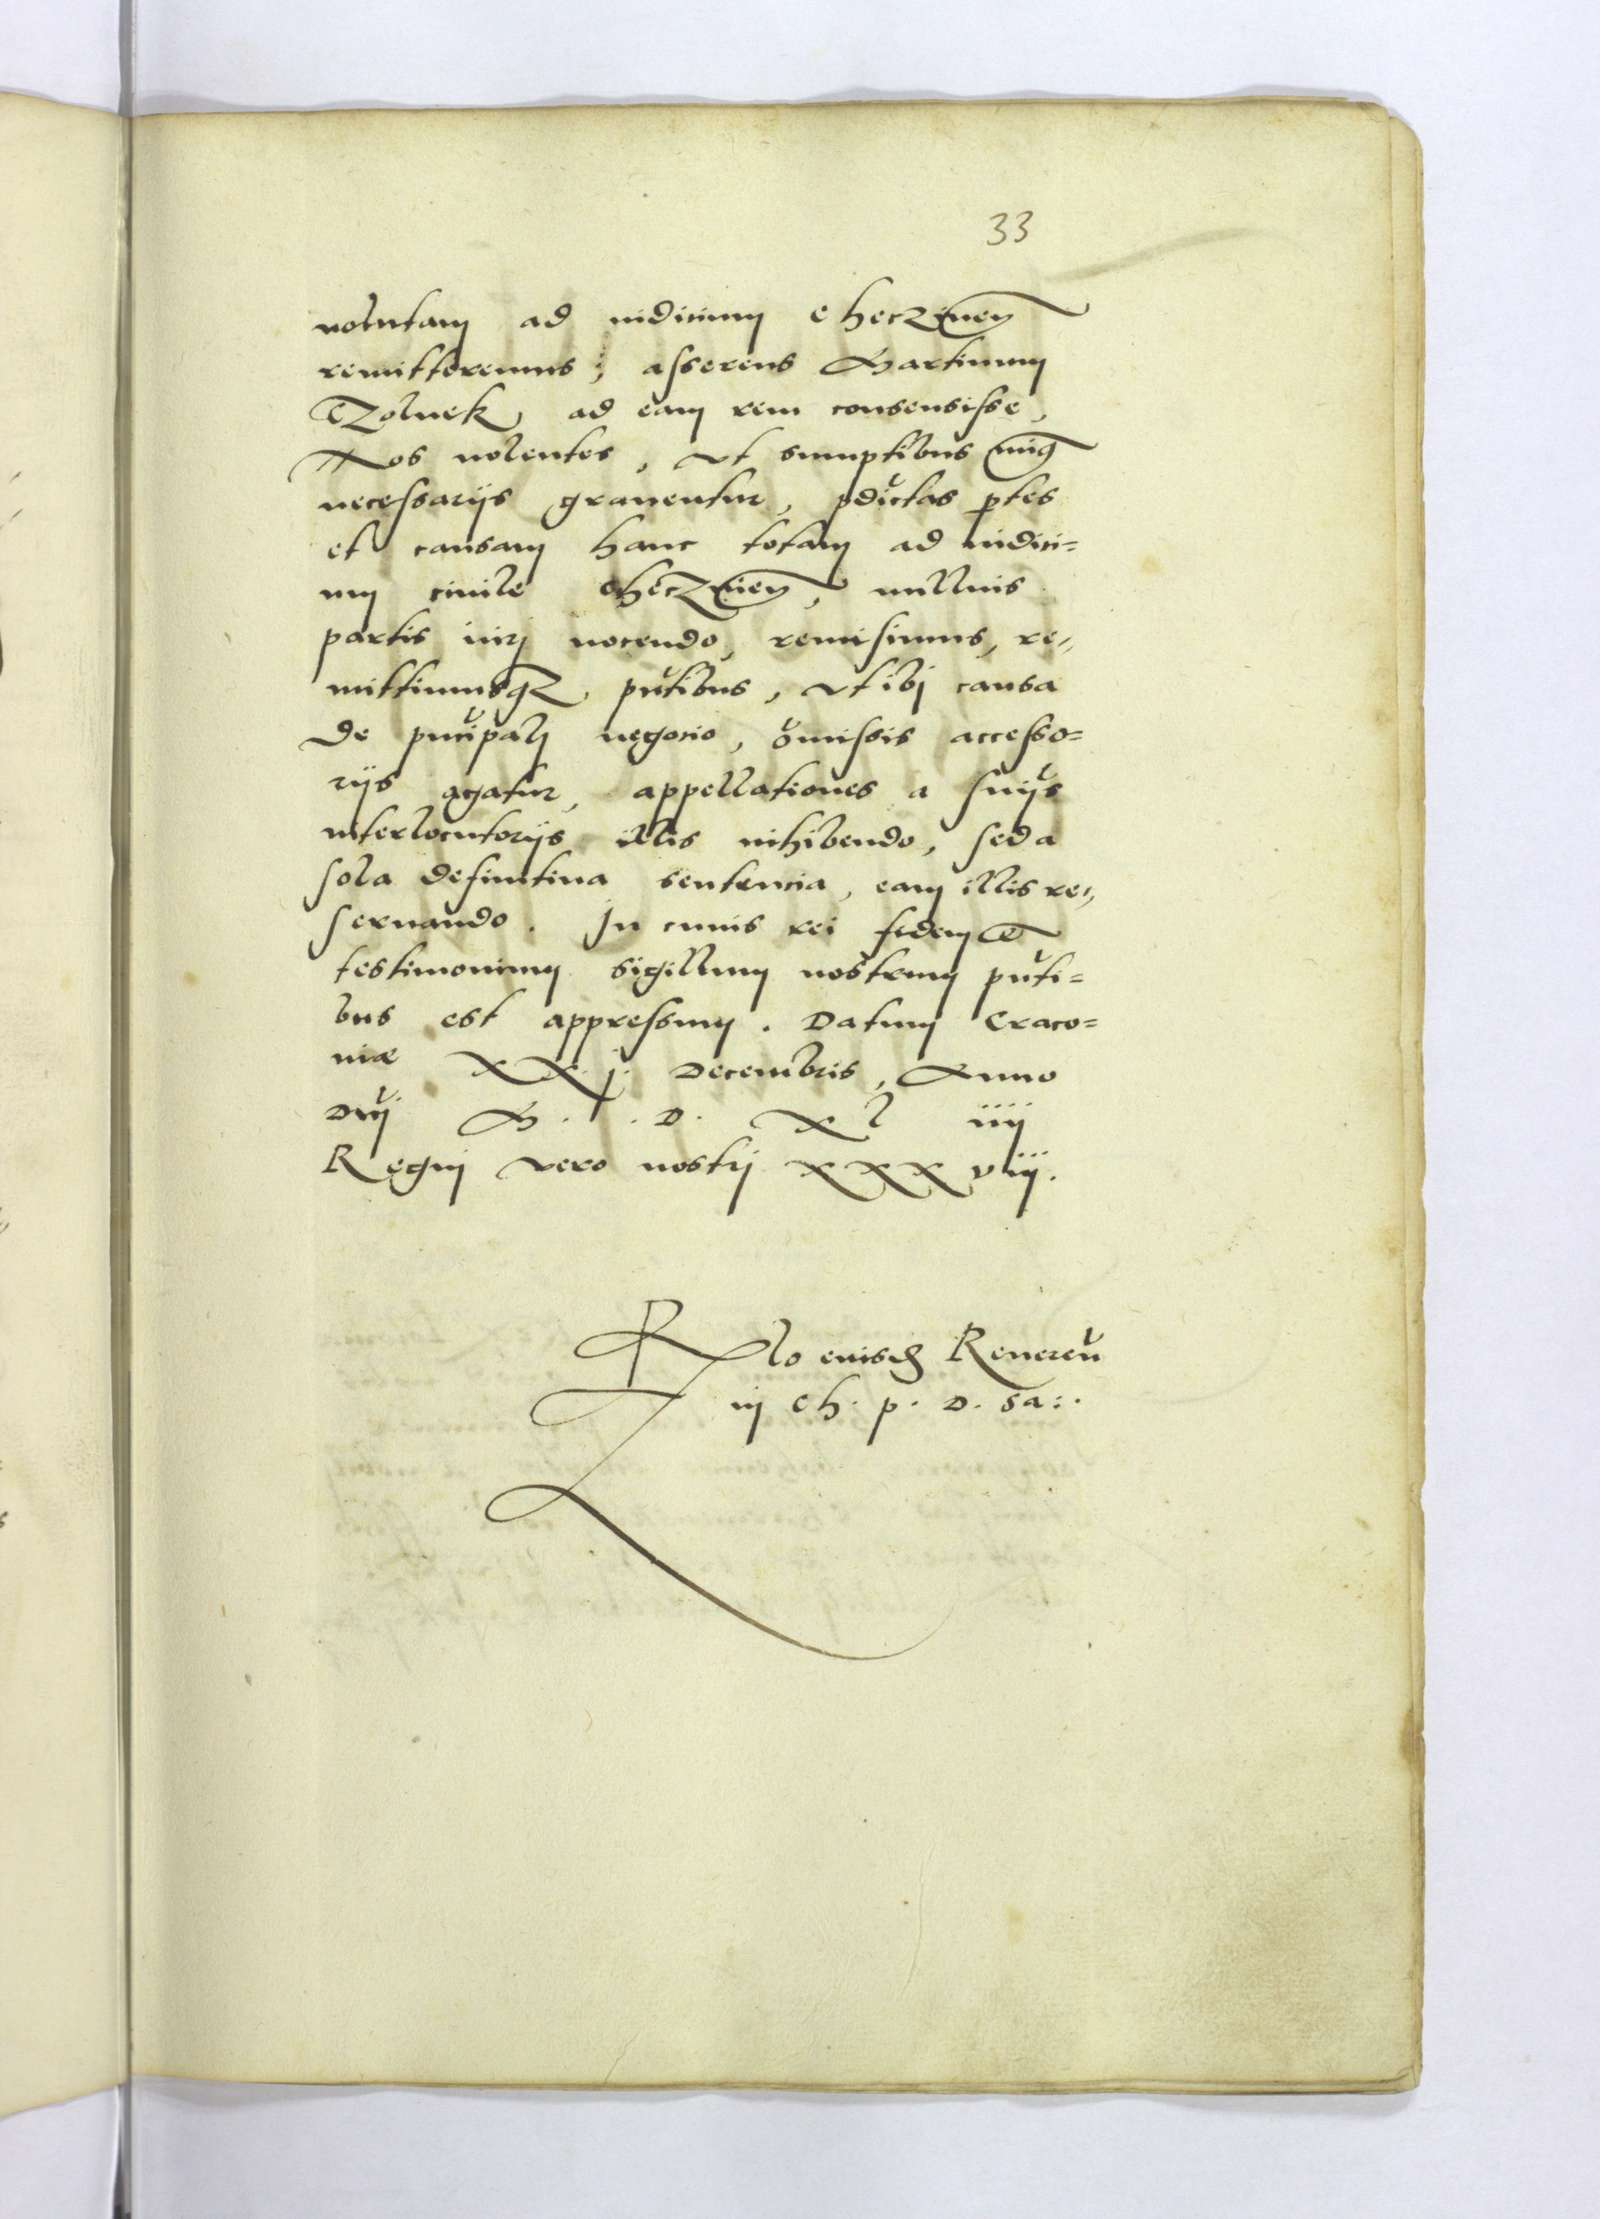 33
uolutam ad iudicium Checzinen
remitteremus; asserens Martinum
Czolnek, ad eam rem consensisse,
Nos nolentes, ut sumptibus
necessarijs grauentur, pdictas ptes
et causam hanc totam ad iudici=
um ciuile Checzinen, nullius
partis iurj nocendo, remisimus, re,,
mittimusq3 pntibus, ut ibj causa
de pncipalj negocio, omissis accesso=
rijs agatur, appellationes a snijs
interlocutorijs illis inhibendo, sed a
sola definitiua sentencia, eam illis re,,
seruando. In cuius rei fidem et
testimonium sigillum nostrum pnti=
bus est appressum. Datum Craco=
uiæ XXj. Decembris, Anno
Dnj M. D. XL iiij
Regnj vero nostrj XXXviij.
Rlo eiusd Reueren
in Ch. p. D. Sa:.